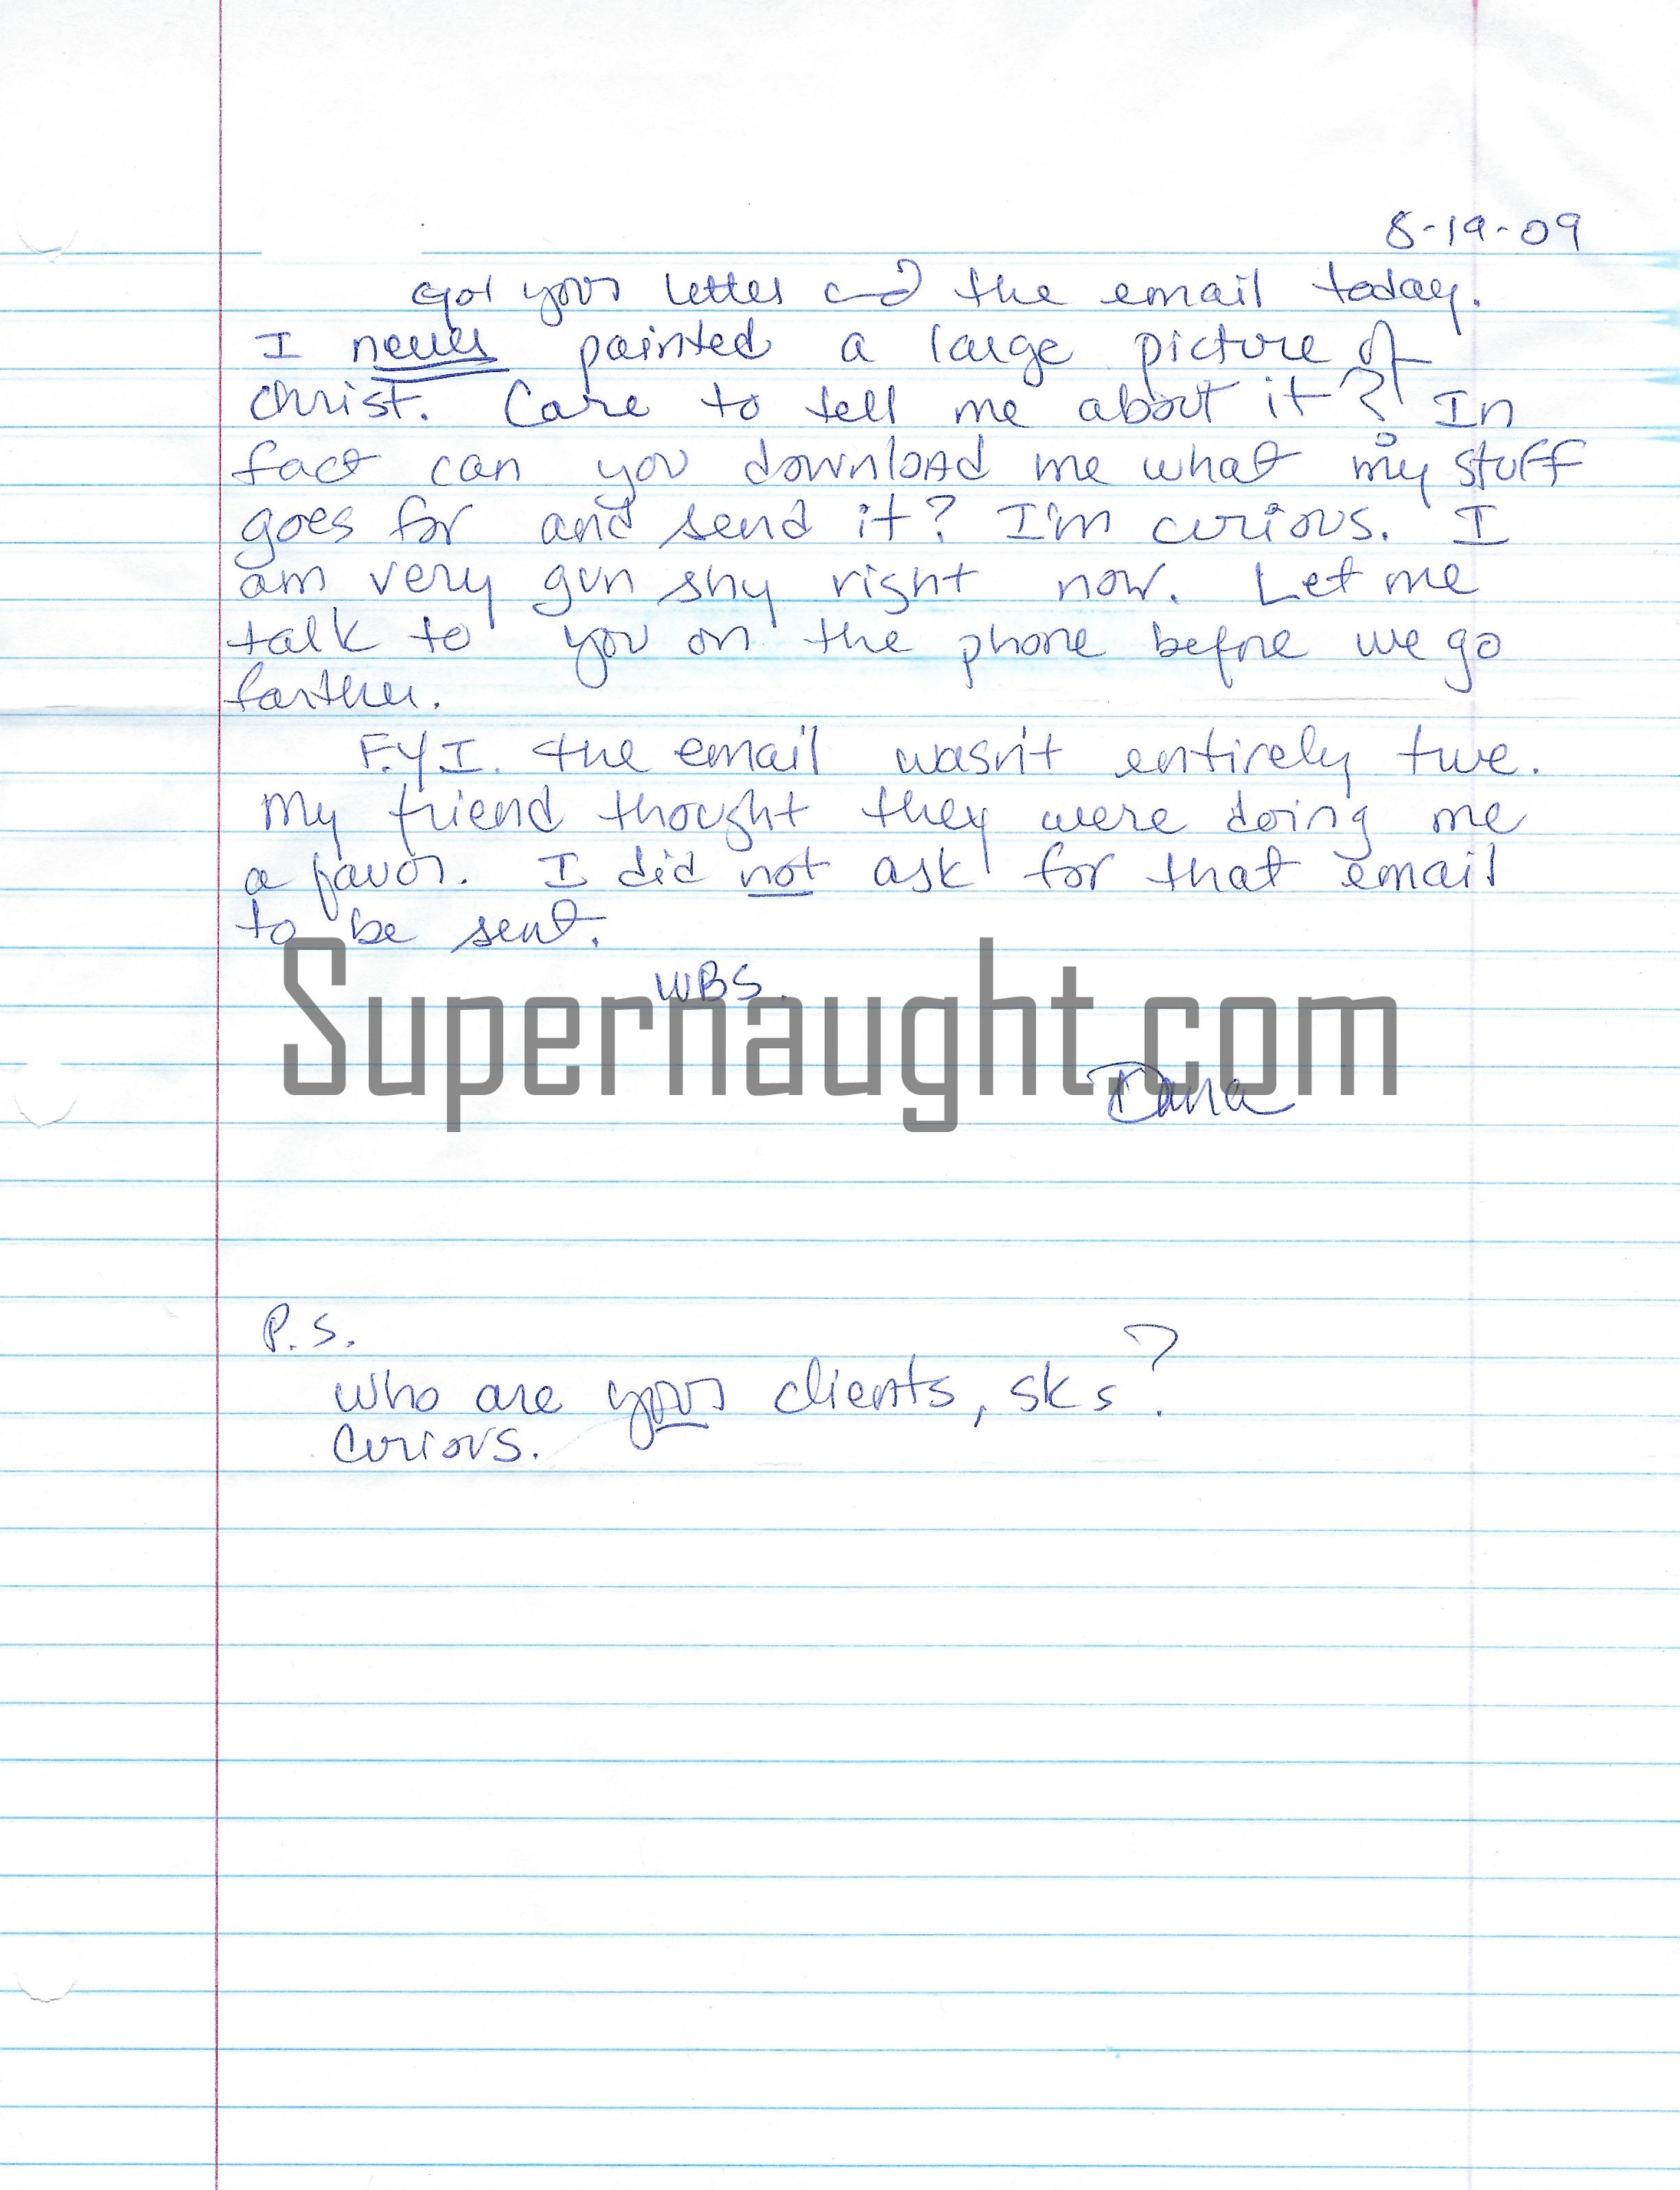 8-19-09
Got your letter and the email today.
I never painted a large picture of
Christ. Care to tell me about it? In
fact can you download me what my stuff
goes for and send it? I'm curious. I
am very gun shy right now. Let me
talk to you on the phone before we go
farther.
F.Y.I. the email wasn't entirely true.
My friend thought they were doing me
a favor. I did not ask for that email
to be sent.
WBS.
Supernaught.com
Dana
P.S.
who are your clients, sks?
Curious.